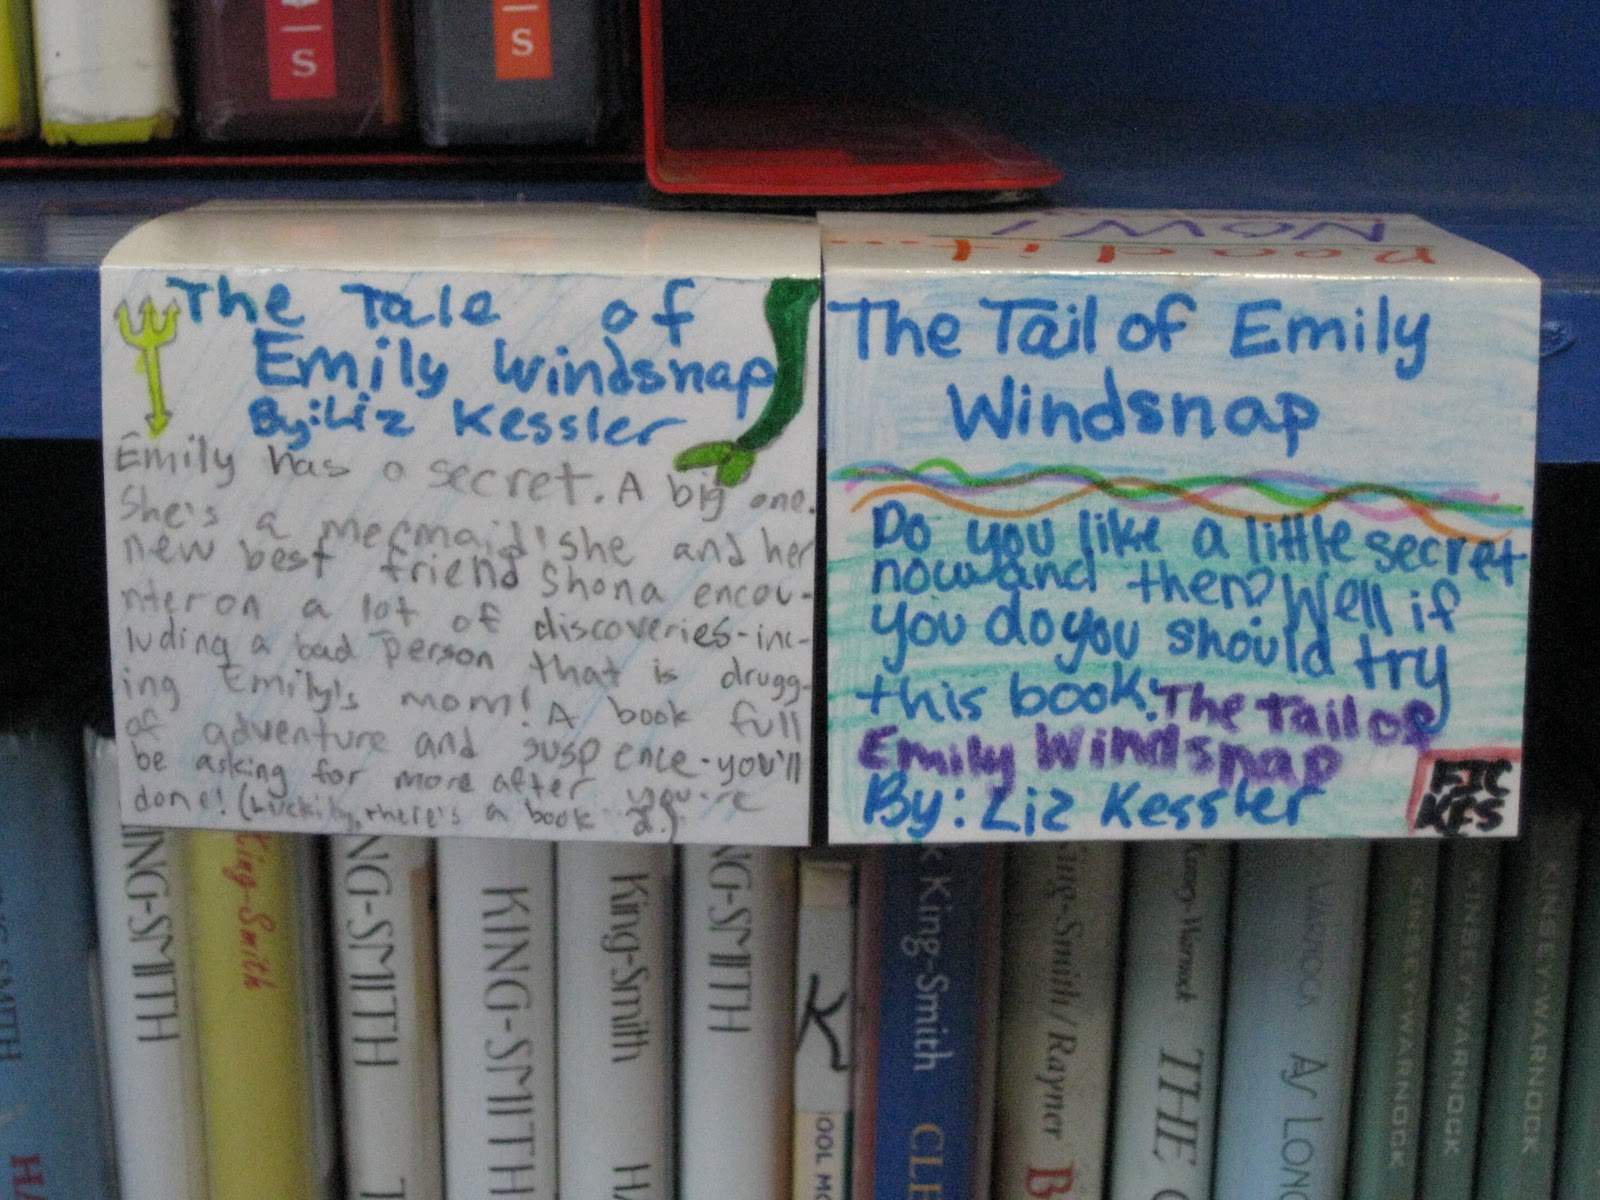 S
S
Read it...
NOW!
The Tale of
Emily Windsnap
By: Liz Kessler
Emily has a secret. A big one.
She's a mermaid! She and her
new best friend Shona encou-
nter on a lot of discoveries-inc-
luding a bad person that is drugg-
ing Emily's mom! A book full
of adventure and suspence-you'll
be asking for more after you're
done! (luckily, there's a book 2!)
The Tail of Emily
Windsnap
Do you like a little secret
now and then? Well if
you do you should try
this book: The Tail of
Emily Windsnap
By: Liz Kessler
FIC
KES
KING-SMITH
King-Smith
KING-SMITH
KING-SMITH
King-Smith
KING-SMITH
K
King-Smith
King-Smith/Rayner
Kinsey-Warnock THE
WARNOCK As LONG
KINSEY-WARNOCK
KINSEY-WARNOCK
KINSEY-WARNOCK